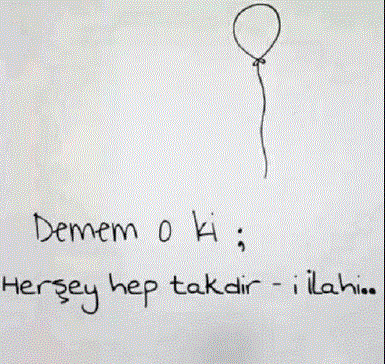 Demem o ki ;
Herşey hep takdir - i ilahi..